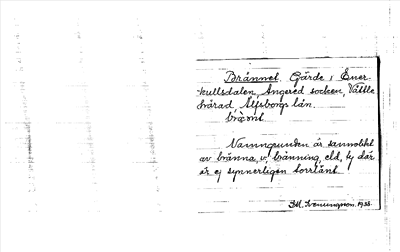 Brännel. Gärde i Ener-
kullsdalen, Angered socken, Vättle
härad Älfsborgs län.
Namngrunden är sannolikt
av bränna, v, bränning, eld, ty där
är ej synnerligen torrlänt.
1933.